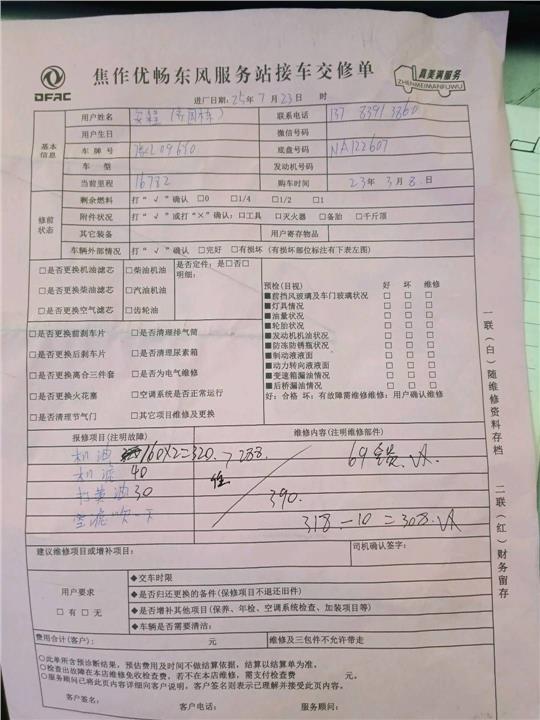 DFAC
焦作优畅东风服务站接车交修单
真美满服务
ZHENMEIMANFUWU
进厂日期：25年7月23日 时
基本信息
用户姓名
联系电话 137 8391 3860
用户生日
微信号码
车牌号
底盘号码 NA122607
车型
发动机号码
当前里程 16782
购车时间 23年3月8日
修前状态
剩余燃料 打“√”确认 □0 □1/4 □1/2 □1
附件状况 打“√”或打“×”确认：□工具 □灭火器 □备胎 □千斤顶
其它装备
用户寄存物品
车辆外部情况 打“√”确认 □完好 □有损坏（有损坏部位标注有下表左图）
□是否更换机油滤芯 □柴油机油
□是否更换柴油滤芯 □汽油机油
□是否更换空气滤芯 □齿轮油
是否定件：是□否□
明细：
□是否更换前刹车片 □是否清理排气筒
□是否更换后刹车片 □是否清理尿素箱
□是否更换离合三件套 □是否为电气维修
□是否更换火花塞 □空调系统是否正常运行
□是否清理节气门 □其它项目维修及更换
预检(目视) 好 坏 维修
■前挡风玻璃及车门玻璃状况 □ □ □
■灯具情况 □ □ □
■油量状况 □ □ □
■轮胎状况 □ □ □
■发动机机油状况 □ □ □
■防冻防锈瓶状况 □ □ □
■制动液液面 □ □ □
■动力转向液液面 □ □ □
■变速箱漏油情况 □ □ □
■后桥漏油情况 □ □ □
好：合格 坏：有故障需维修维修：用户确认维修
报修项目(注明故障)
维修内容(注明维修部件)
机油 160×2=320. 288.
机滤 40
打黄油 30
空滤吹一下
390.
318-10=308.
建议维修项目或增补项目：
司机确认签字：
用户要求
□有□无
◆交车时限
◆是否归还更换的备件(保修项目不退还旧件)
◆是否增补其他项目(保养、年检、空调系统检查、加装项目等)
◆车辆是否需要清洁：
费用合计(客户)： 元
维修及三包件不允许带走
○此单所含预诊断结果，预估费用及时间不做结算依据，结算以结算单为准。
○检查出故障在本店维修免收检查费，若不在本店维修，需支付检查费 元。
○服务顾问已将此页内容详细向客户说明，客户签名则表示已理解并接受此页内容。
客户签名： 客户电话： 服务顾问：
一联（白）随维修资料存档
二联（红）财务留存